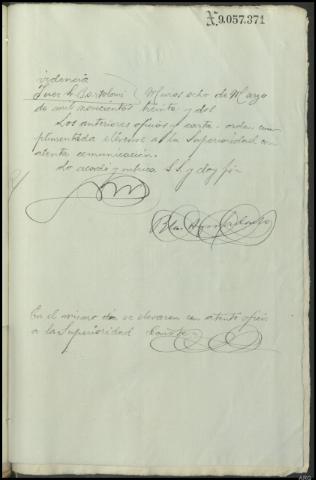 9.057.371
videncia
Juez Sr. Bartolomé } Muros ocho de Marzo
de mil novecientos treinta y dos.
Los anteriores oficios y carta-orden cum
plimentada elévense a la Superioridad con
atenta comunicación.
Lo acordó y rubrica S.S. y doy fé
En el mismo día se elevaron con atento oficio
a la Superioridad Conste
ARG